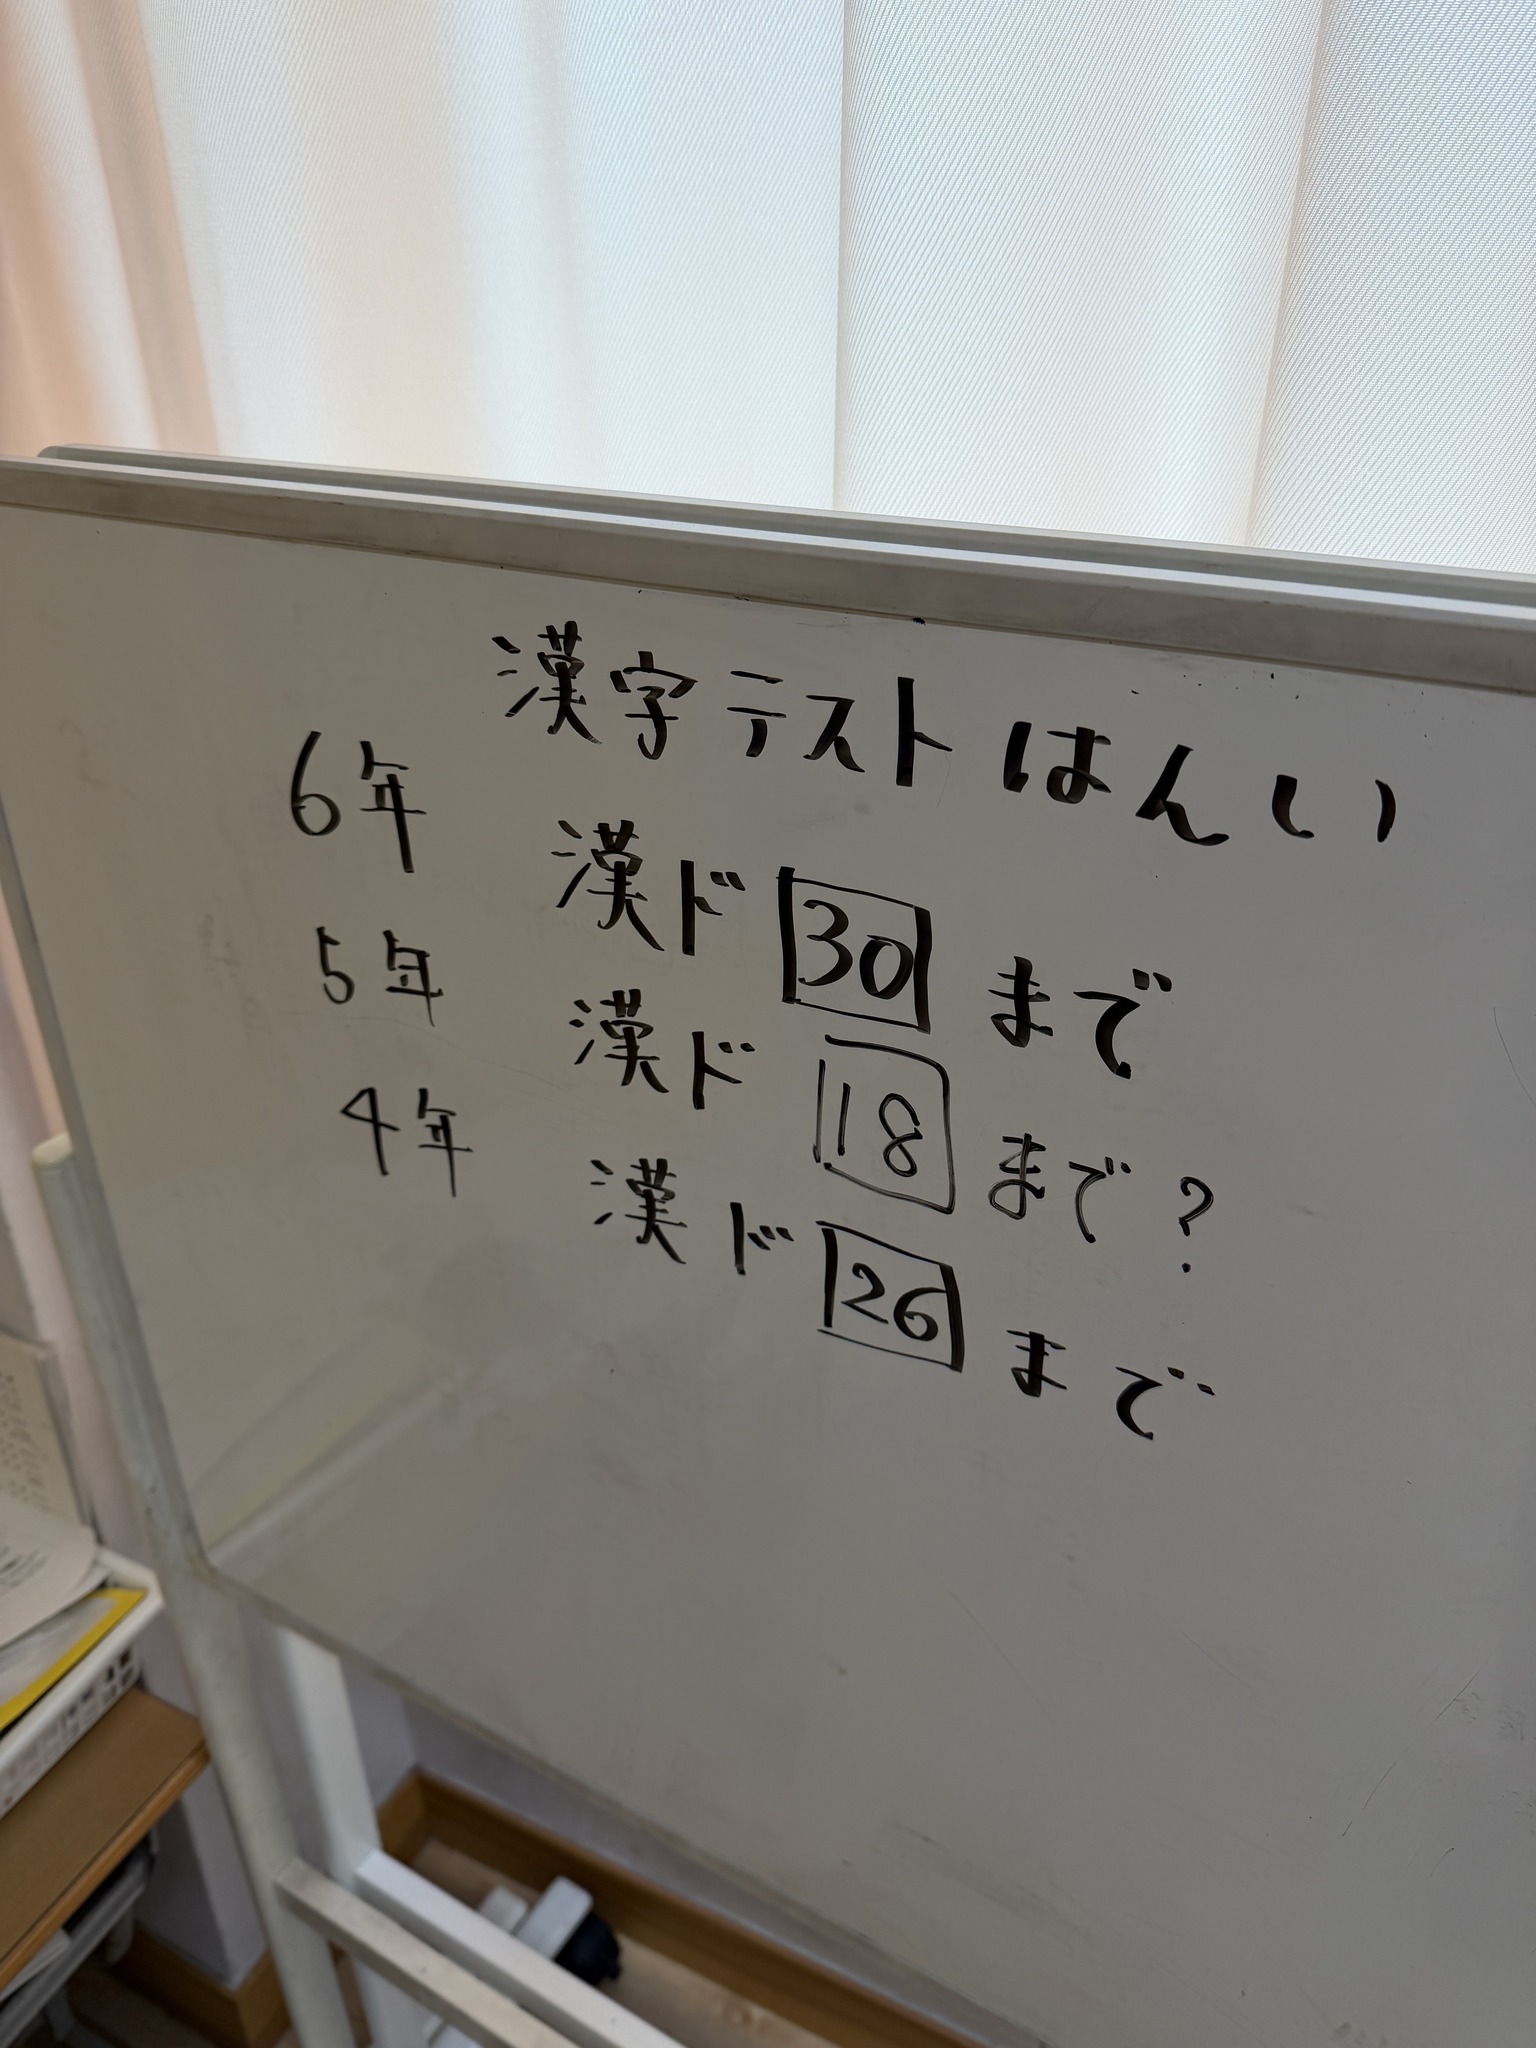 漢字テスト はんい
6年 漢ド 30 まで
5年 漢ド 18 まで?
4年 漢ド 26 まで